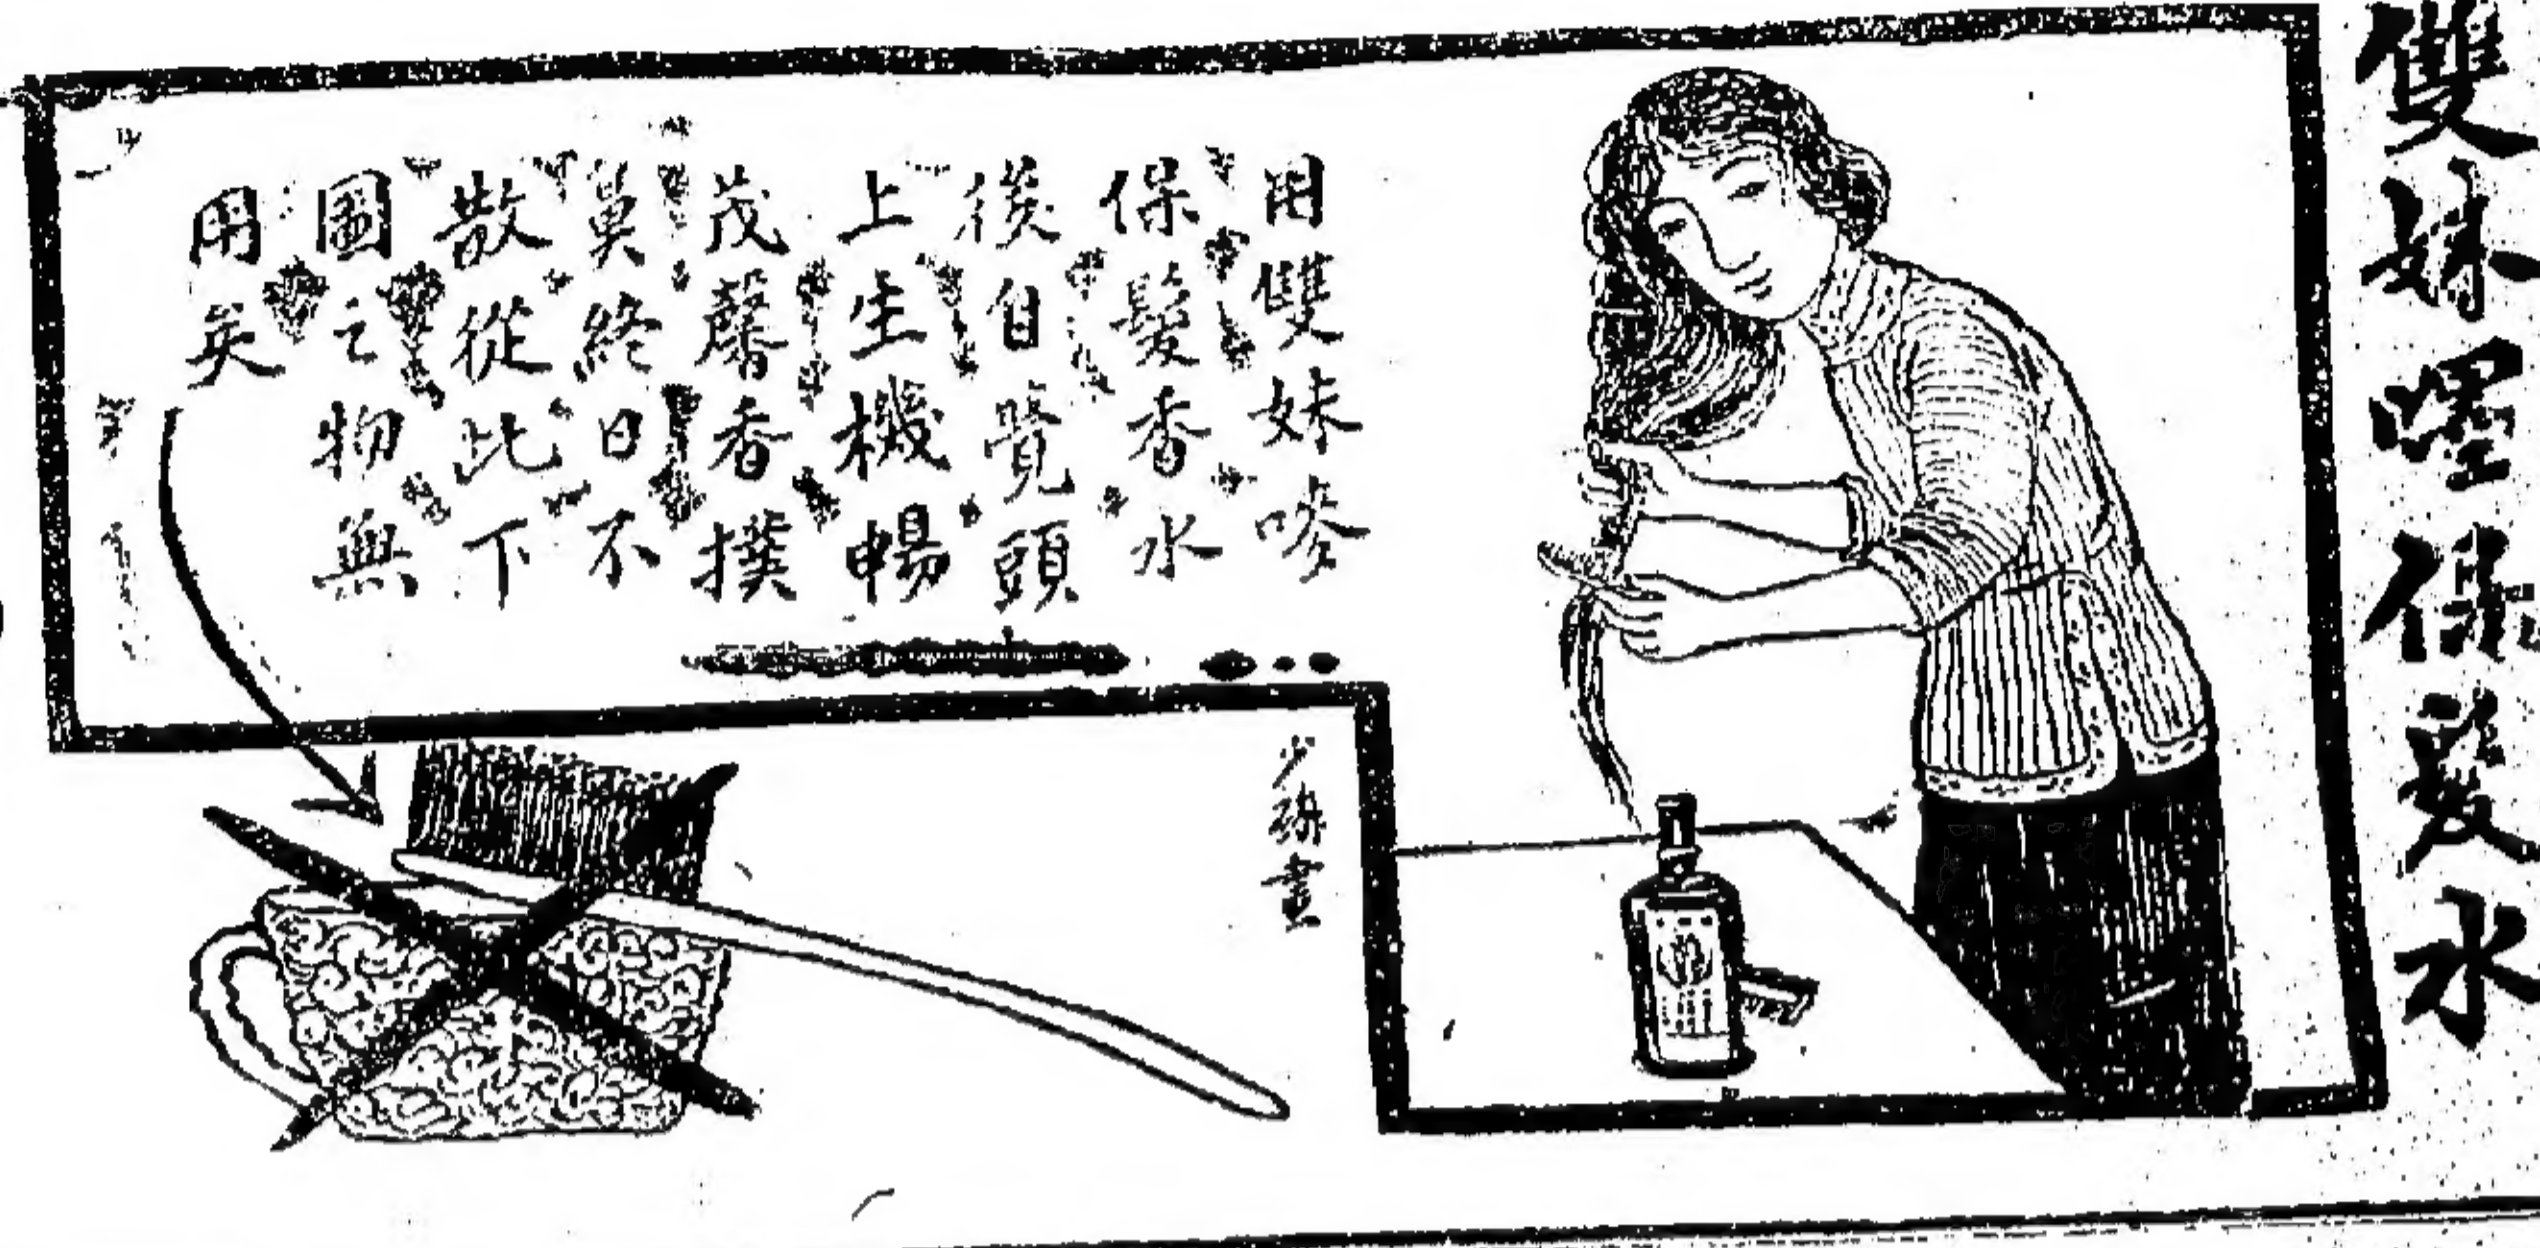 雙妹嚜保髮水
用雙妹嘜
保髮香水
後自覺頭
上生機暢
茂馨香撲
鼻終日不
散從此下
圖之物無
用矣
少畫